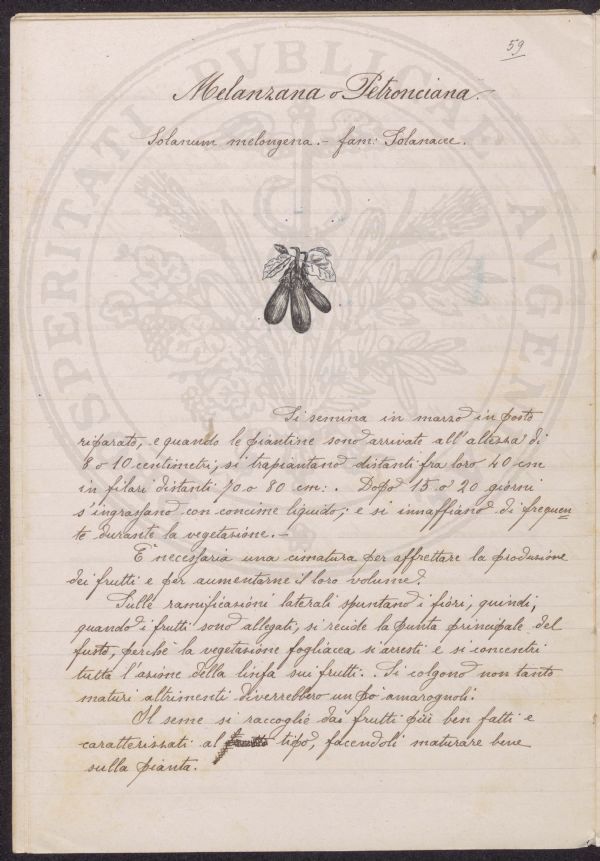 59
Melanzana o Petronciana.
Solanum melongena. - fam: Solanacee.
Si semina in marzo in posto
riparato, e quando le piantine sono arrivate all'altezza di
8 o 10 centimetri, si trapiantano distanti fra loro 40 cm
in filari distanti 70 o 80 cm: . Dopo 15 o 20 giorni
s'ingrassano con concime liquido; e si innaffiano di frequen-
te durante la vegetazione. -
E' necessaria una cimatura per affrettare la produzione
dei frutti e per aumentarne il loro volume.
Sulle ramificazioni laterali spuntano i fiori, quindi,
quando i frutti sono allegati, si recide la punta principale del
fusto, perchè la vegetazione fogliacea si arresti e si concentri
tutta l'azione della linfa sui frutti. . Si colgono non tanto
maturi altrimenti diverrebbero un pò amarognoli.
Il seme si raccoglie dai frutti più ben fatti e
caratterizzati al tipo, facendoli maturare bene
sulla pianta.
SPERITATI PVBLICAE AVGEN